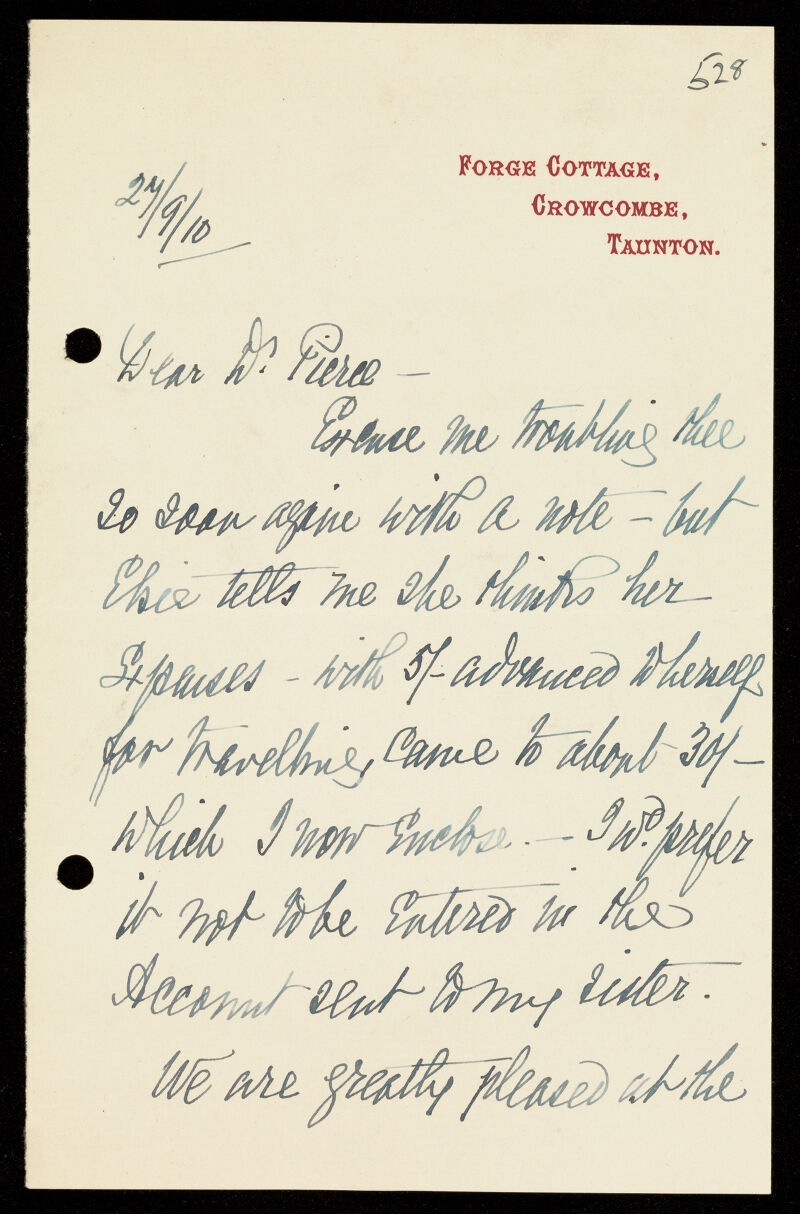 528
FORGE COTTAGE,
CROWCOMBE,
TAUNTON.
27/9/10
Dear Dr. Pierce —
Excuse me troubling thee
so soon again with a note – but
Elsie tells me she thinks her
Expenses – with 5/- advanced to herself
for travelling, came to about 30/–
which I now Enclose. — I wd. prefer
it not to be Entered in the
Account sent to my sister.
We are greatly pleased at the